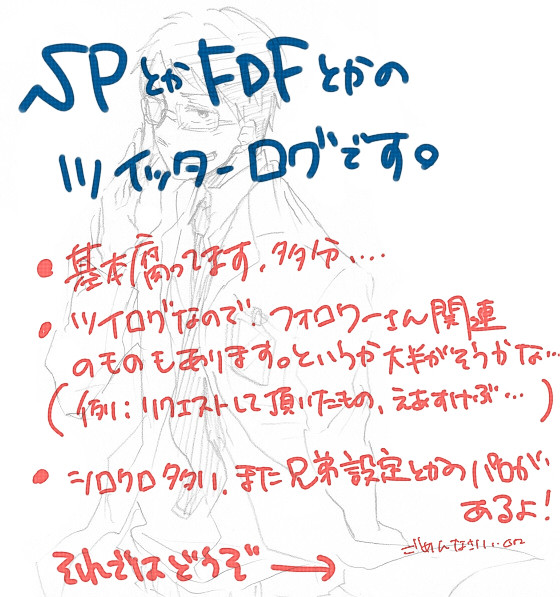 SPとかFDFとかの
ツイッターログです。
• 基本腐ってます、多分....
• ツイログなので、フォロワーさん関連
のものもあります。というか大半がそうかな...
(例:リクエストして頂いたもの、えあすけぶ...)
• シロクロ多い、また兄弟設定とかのパロが
あるよ!
ごめんなさい.orz
それではどうぞ →